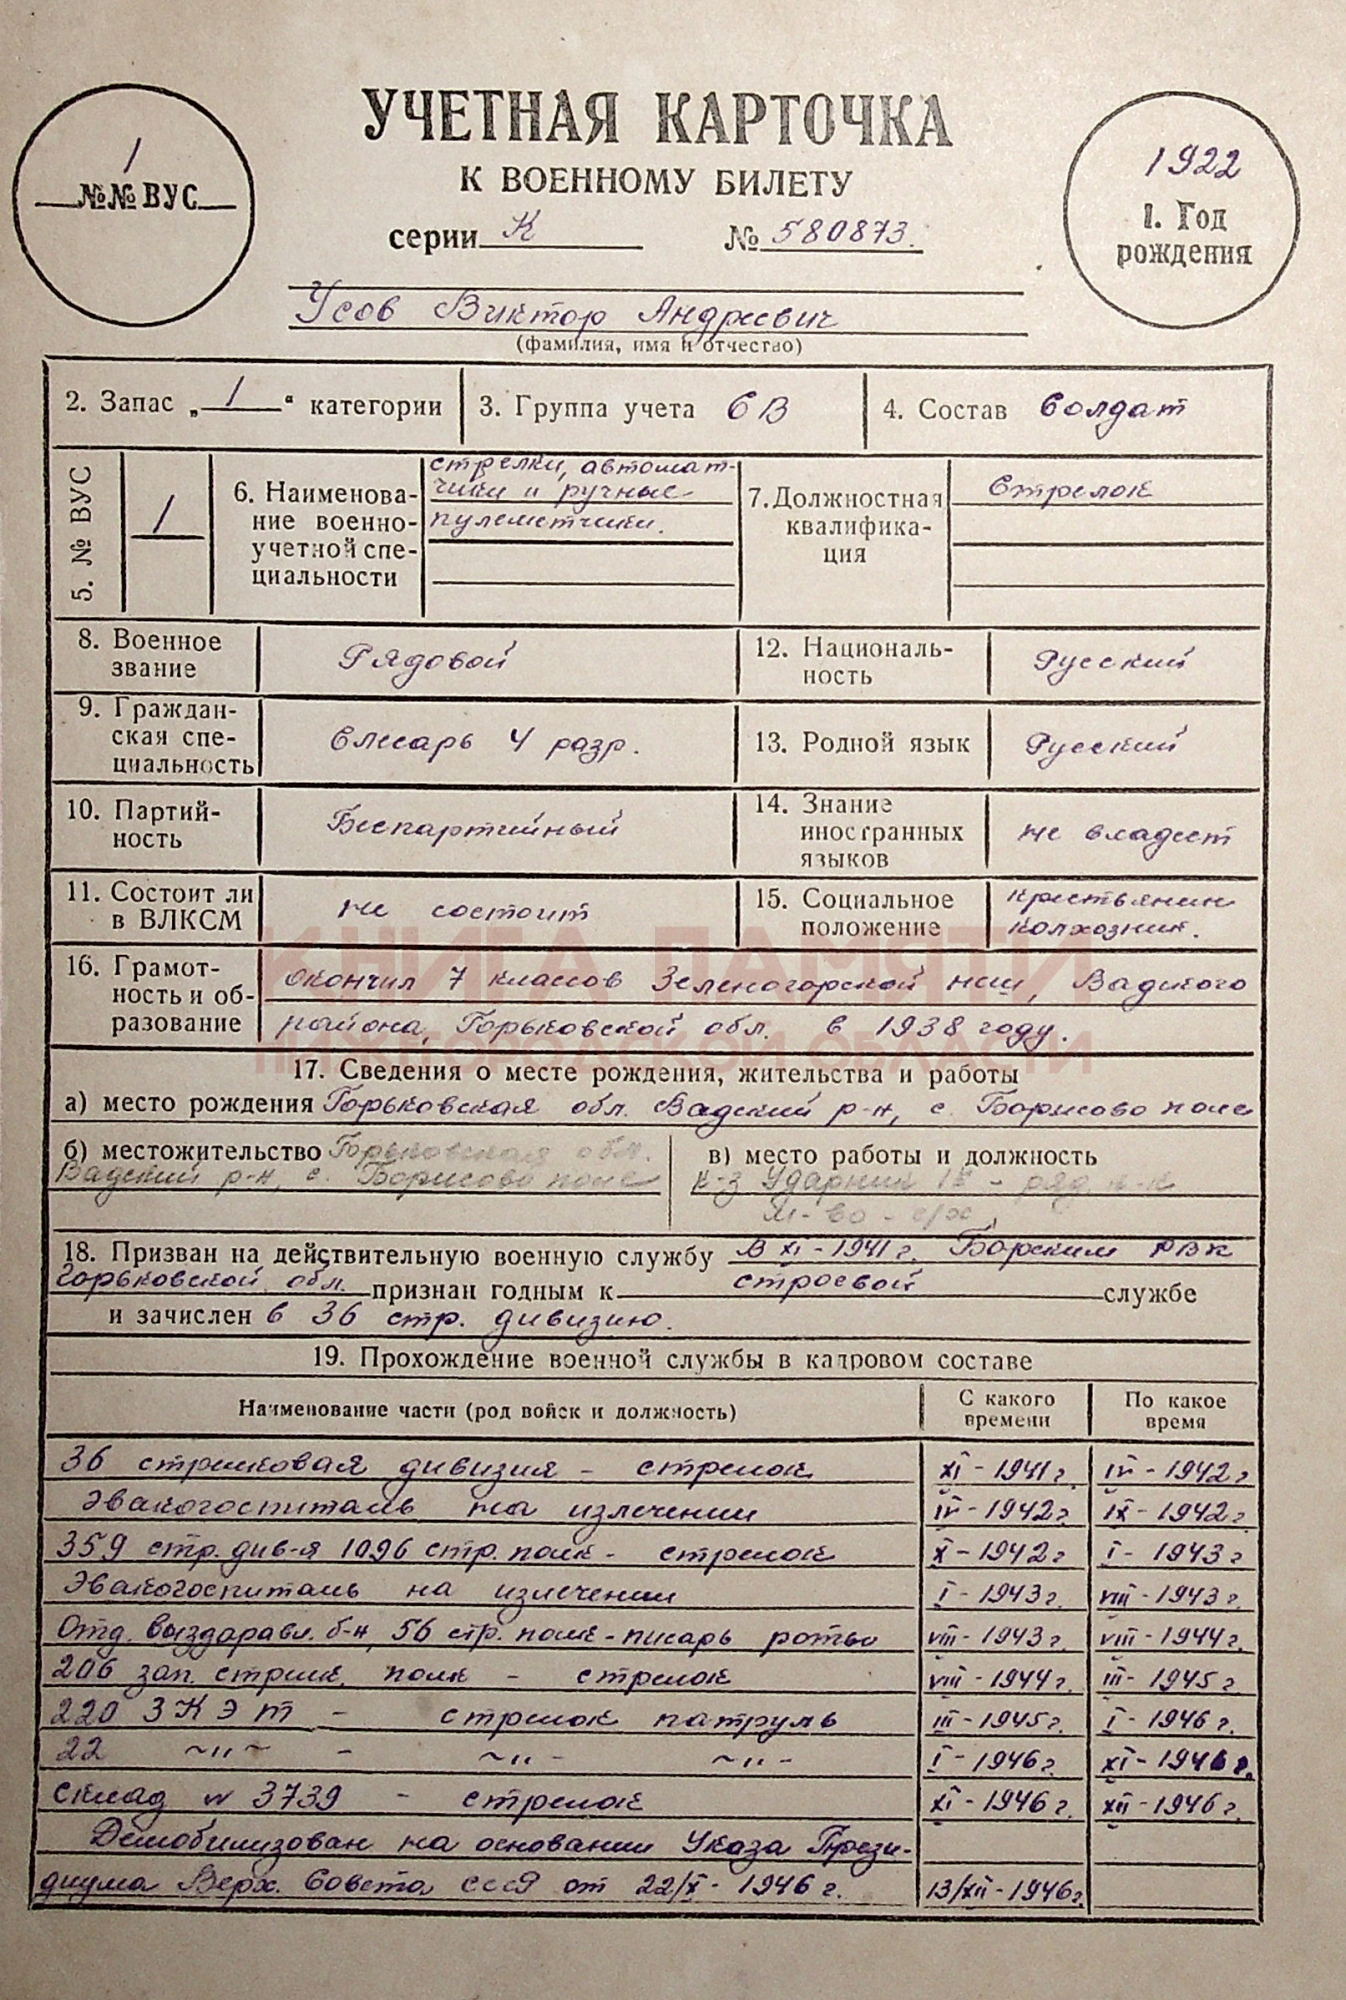 УЧЕТНАЯ КАРТОЧКА
К ВОЕННОМУ БИЛЕТУ
серии К № 580873.
1
№№ ВУС
1922
1. Год
рождения
Усов Виктор Андреевич
(фамилия, имя и отчество)
2. Запас „ 1 “ категории
3. Группа учета СВ
4. Состав Солдат
5. № ВУС
1
6. Наименова-
ние военно-
учетной спе-
циальности
стрелки, автомат-
чики и ручные
пулеметчики.
7. Должностная
квалифика-
ция
Стрелок
8. Военное
звание
Рядовой
12. Националь-
ность
Русский
9. Граждан-
ская спе-
циальность
Слесарь 4 разр.
13. Родной язык
Русский
10. Партий-
ность
Беспартийный
14. Знание
иностранных
языков
не владеет
11. Состоит ли
в ВЛКСМ
не состоит
15. Социальное
положение
крестьянин
колхозник.
КНИГА ПАМЯТИ
НИЖЕГОРОДСКОЙ ОБЛАСТИ
16. Грамот-
ность и об-
разование
окончил 7 классов Зеленогорской нсш, Вадского
района, Горьковской обл. в 1938 году.
17. Сведения о месте рождения, жительства и работы
а) место рождения Горьковская обл. Вадский р-н, с. Борисово поле
б) местожительство Горьковская обл.
Вадский р-н, с. Борисово поле
в) место работы и должность
к-з Ударник - ряд. к-к
М-во - с/х
18. Призван на действительную военную службу В XI - 1941 г. Борским РВК
Горьковской обл. признан годным к строевой службе
и зачислен в 36 стр. дивизию.
19. Прохождение военной службы в кадровом составе
Наименование части (род войск и должность)
С какого
времени
По какое
время
36 стрелковая дивизия - стрелок XI - 1941 г. IV - 1942 г.
Эвакогоспиталь на излечении IV - 1942 г. IX - 1942 г.
359 стр. див-я 1096 стр. полк - стрелок X - 1942 г. I - 1943 г.
Эвакогоспиталь на излечении I - 1943 г. VIII - 1943 г.
Отд. выздоравл. б-н, 56 стр. полк - писарь роты VIII - 1943 г. VIII - 1944 г.
206 зап. стрелк. полк - стрелок VIII - 1944 г. III - 1945 г.
220 ЗКЭТ - стрелок патруль III - 1945 г. I - 1946 г.
22 ~"~ - ~"- ~"- I - 1946 г. XI - 1946 г.
Склад N 3739 - стрелок XI - 1946 г. XII - 1946 г.
Демобилизован на основании Указа Прези-
диума Верх. Совета СССР от 22/X - 1946 г. 13/XII - 1946 г.